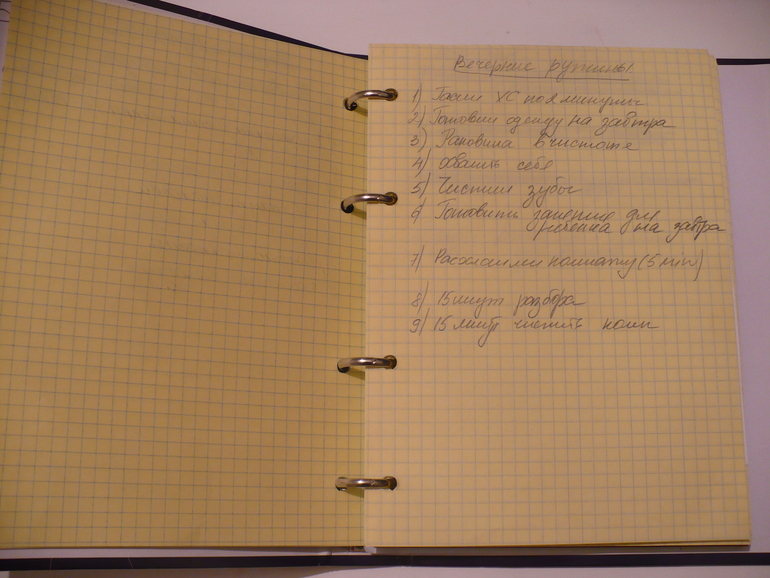 Вечерние рутины
1) Гасим ХС по 2 минуты
2) Готовим одежду на завтра
3) Раковина в чистоте
4) Хвалить себя
5) Чистим зубы
6) Готовить занятие для
ребенка на завтра
7) Расхламляем комнату (5 min)
8) 15 минут разбора
9) 15 минут чистить